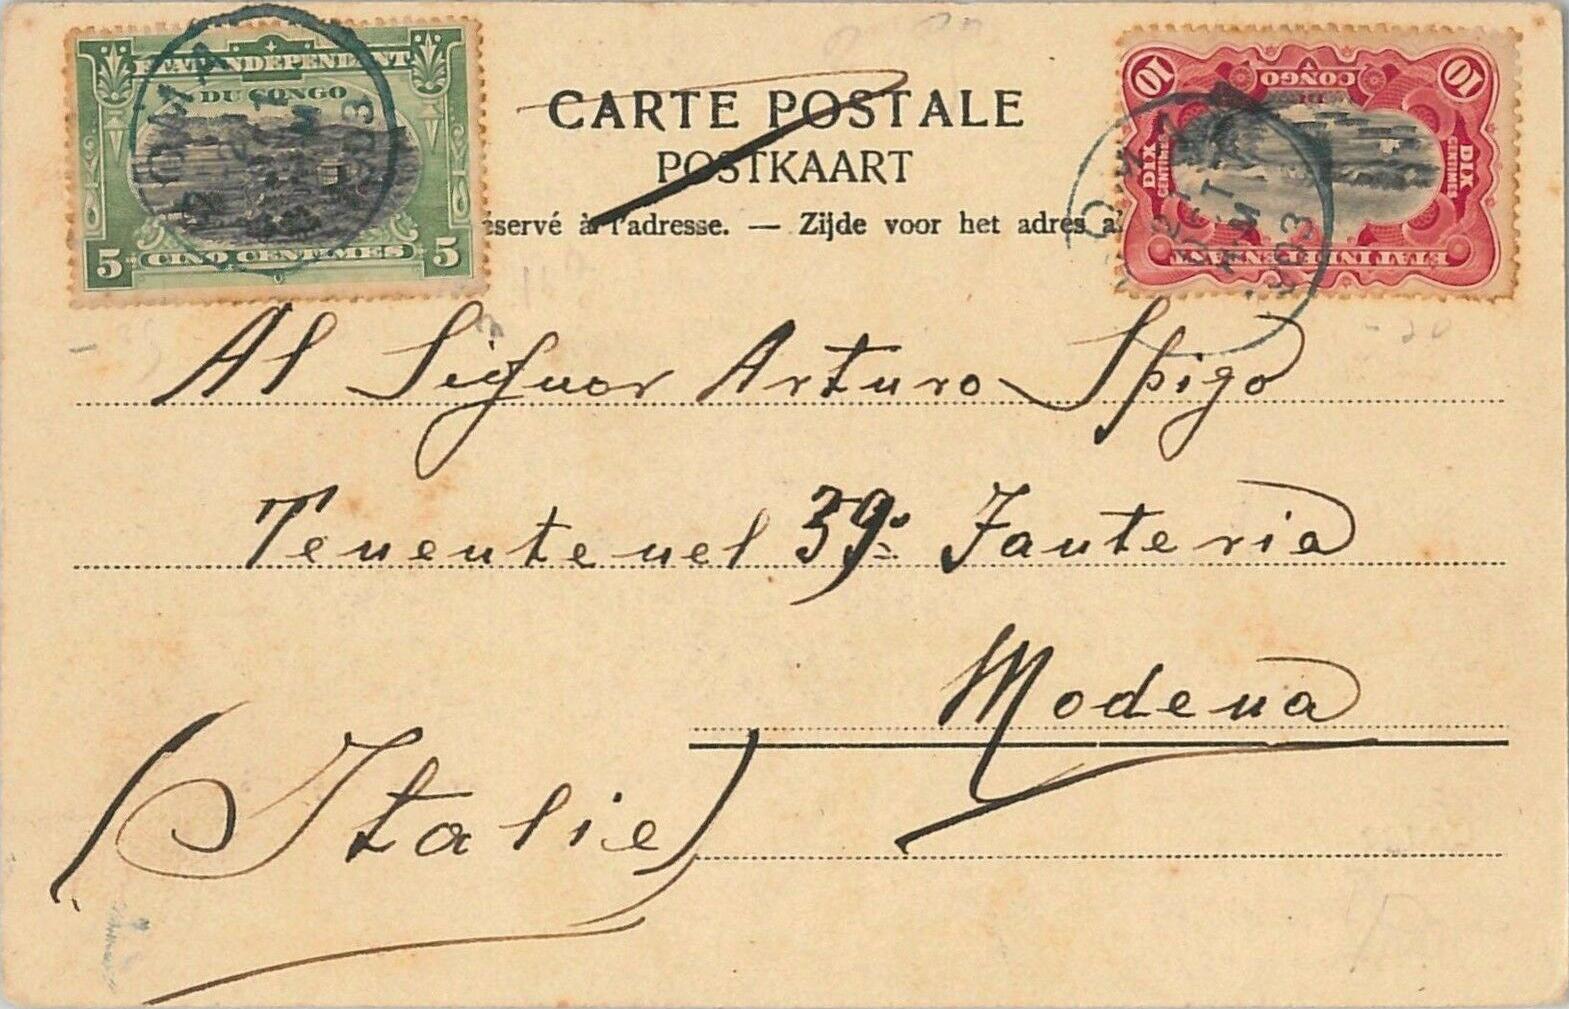 ETAT INDEPENDANT
DU CONGO
5 CINQ CENTIMES 5
10 CONGO 10
DIX CENTIMES
DIX CENTIMES
ETAT INDEPENDANT
CARTE POSTALE
POSTKAART
éservé à l'adresse. — Zijde voor het adres a
BOMA
1903
Al Signor Arturo Spigo
Tenente nel 39º Fanteria
Modena
(Italie)